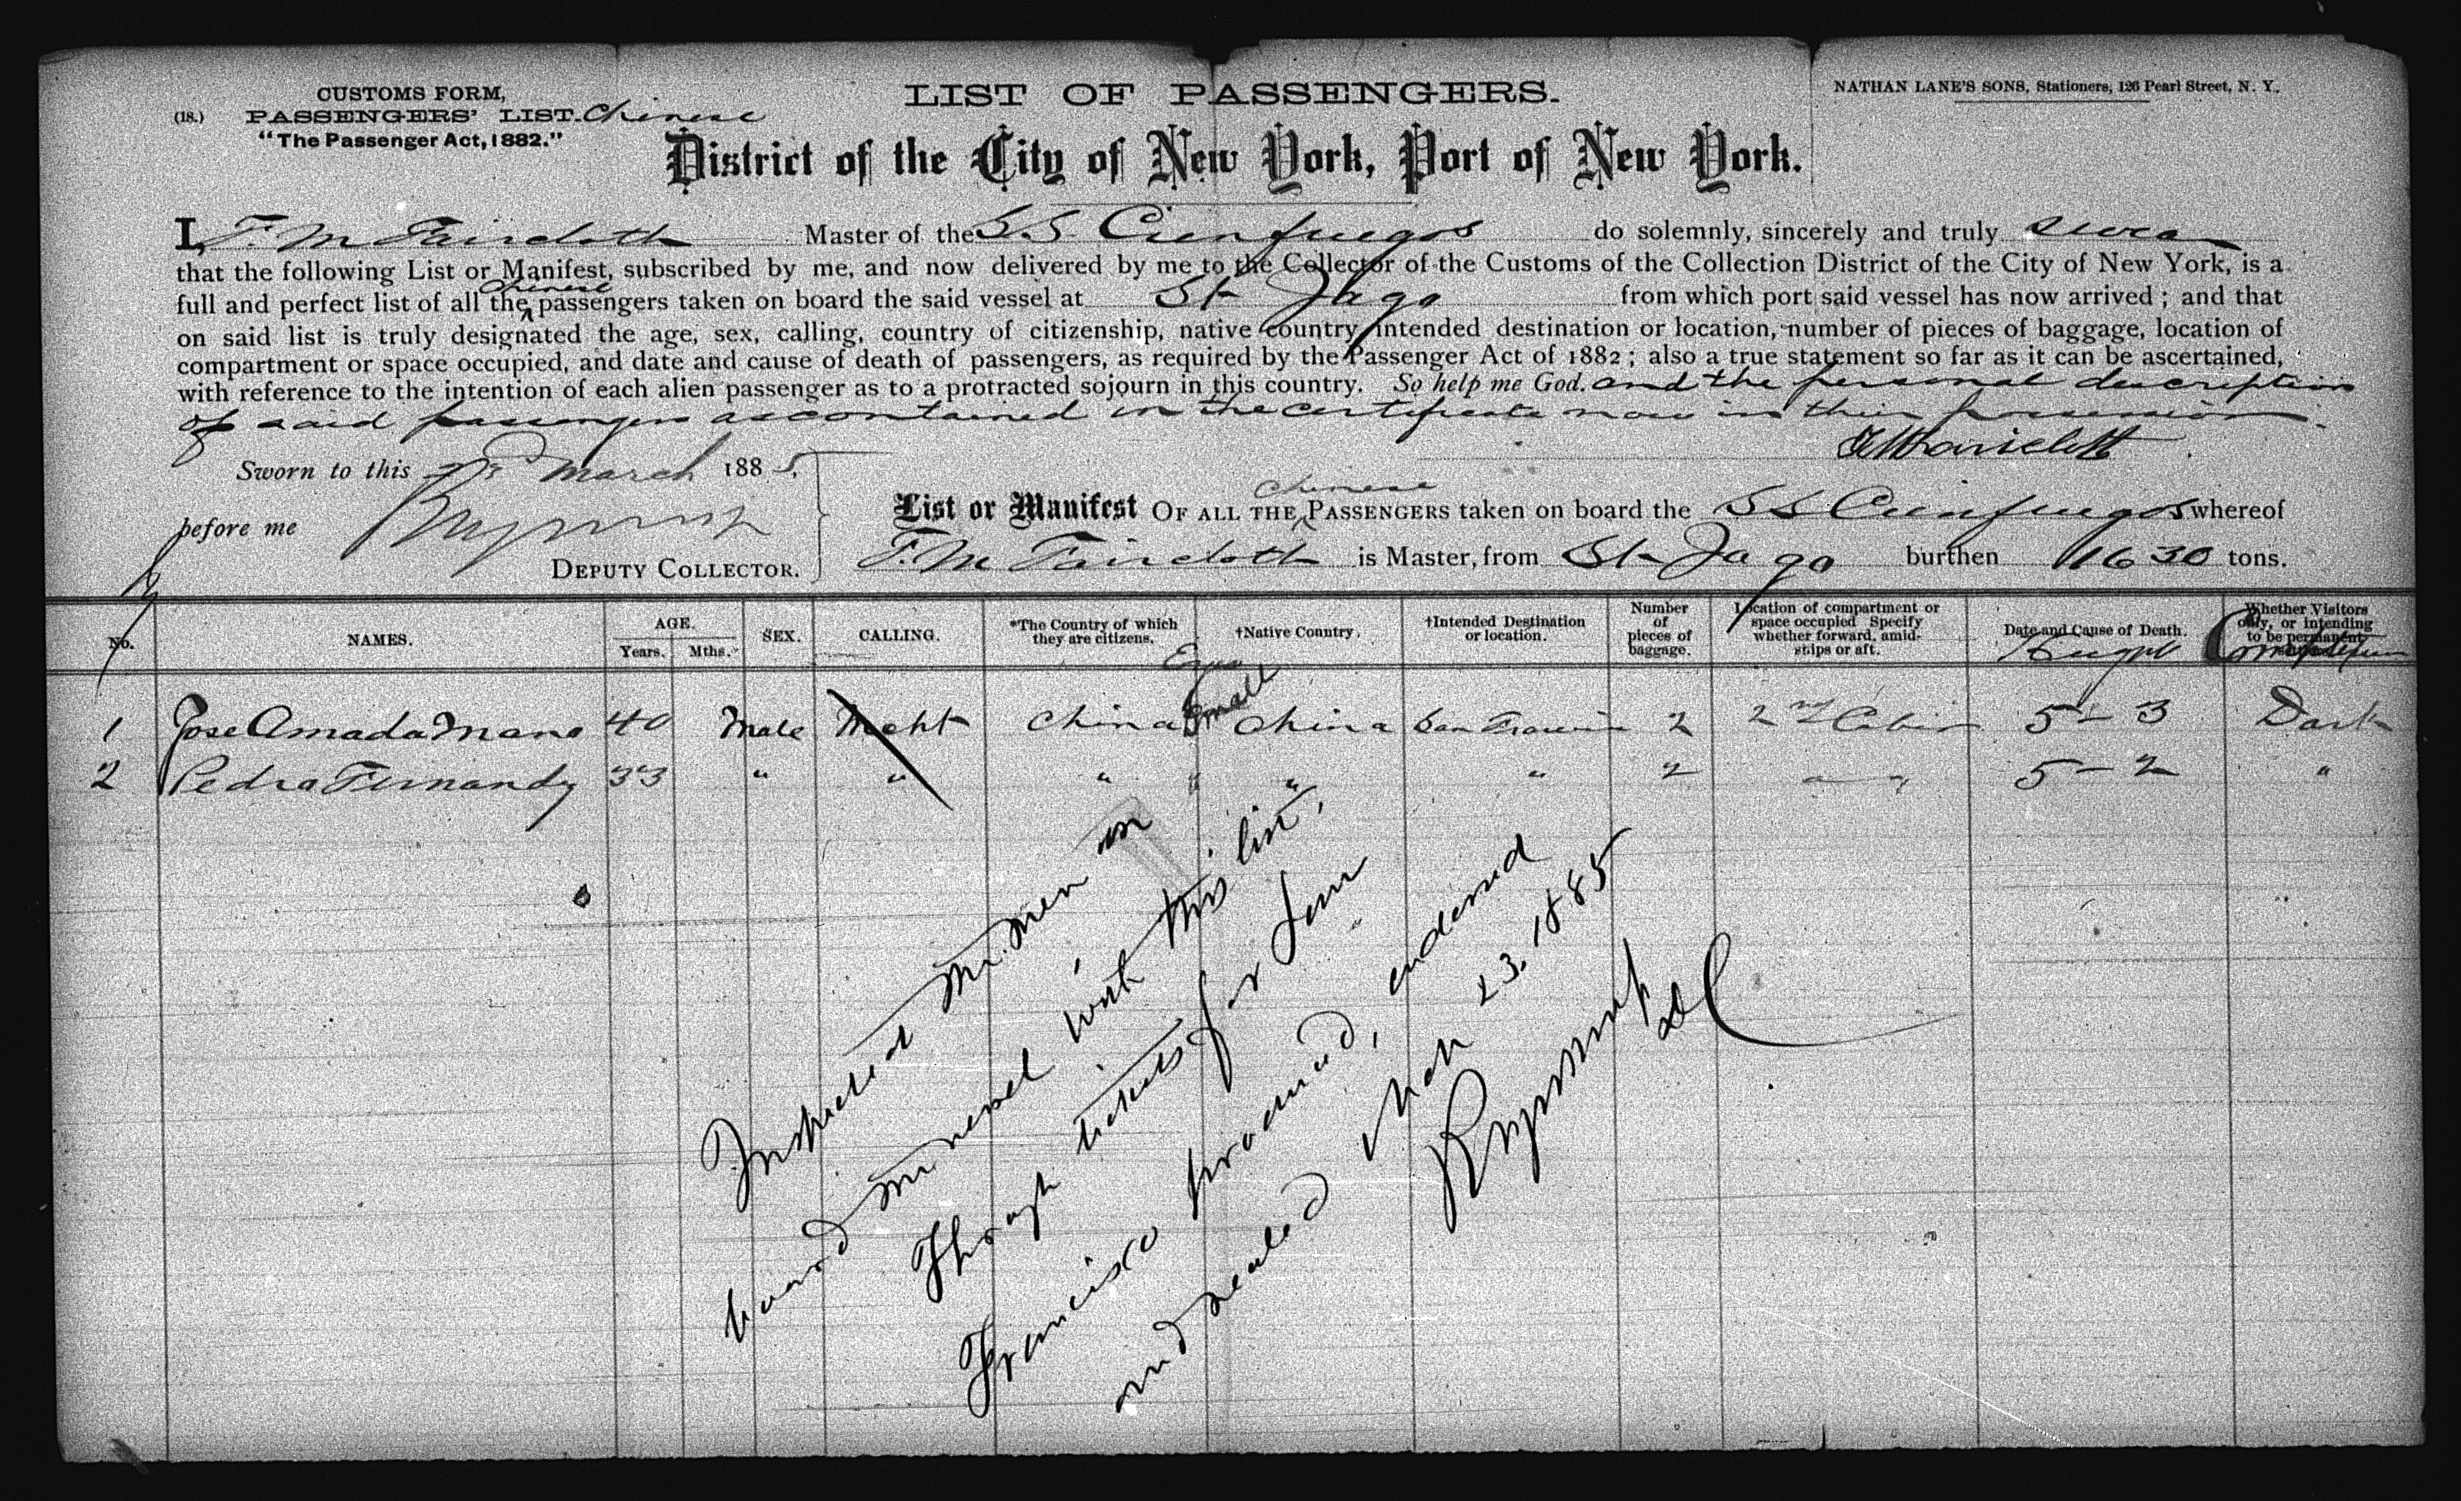 CUSTOMS FORM,
(18.) PASSENGERS' LIST. Chinese
"The Passenger Act, 1882."
LIST OF PASSENGERS.
NATHAN LANE'S SONS, Stationers, 126 Pearl Street, N. Y.
District of the City of New York, Port of New York.
I, F. M Faircloth Master of the SS Cienfuegos do solemnly, sincerely and truly swear
that the following List or Manifest, subscribed by me, and now delivered by me to the Collector of the Customs of the Collection District of the City of New York, is a
full and perfect list of all the Chinese passengers taken on board the said vessel at St Jago from which port said vessel has now arrived ; and that
on said list is truly designated the age, sex, calling, country of citizenship, native country, intended destination or location, number of pieces of baggage, location of
compartment or space occupied, and date and cause of death of passengers, as required by the Passenger Act of 1882 ; also a true statement so far as it can be ascertained,
with reference to the intention of each alien passenger as to a protracted sojourn in this country. So help me God. and the personal description
of said passengers as contained in the certificate now in their possession
F M Faircloth
Sworn to this March 1885.
before me
DEPUTY COLLECTOR.
List or Manifest OF ALL THE Chinese PASSENGERS taken on board the SS Cienfuegos whereof
F. M Faircloth is Master, from St Jago burthen 1630 tons.
No. NAMES. AGE. Years. Mths. SEX. CALLING. *The Country of which they are citizens. †Native Country. †Intended Destination or location. Number of pieces of baggage. Location of compartment or space occupied Specify whether forward, amidships or aft. Date and Cause of Death. Whether Visitors only, or intending to be permanent
Eyes Height Complexion
1 Jose Amada Mano 40 Male Mcht China Small China San Francis 2 2nd Cabin 5 - 3 Dark
2 Pedro Fernandy 33 " " " " " " 2 " " 5 - 2 "
Inspected the men on
board the vessel with this list,
Through tickets for San
Francisco procured, endorsed
and sealed Mch 23, 1885
DC